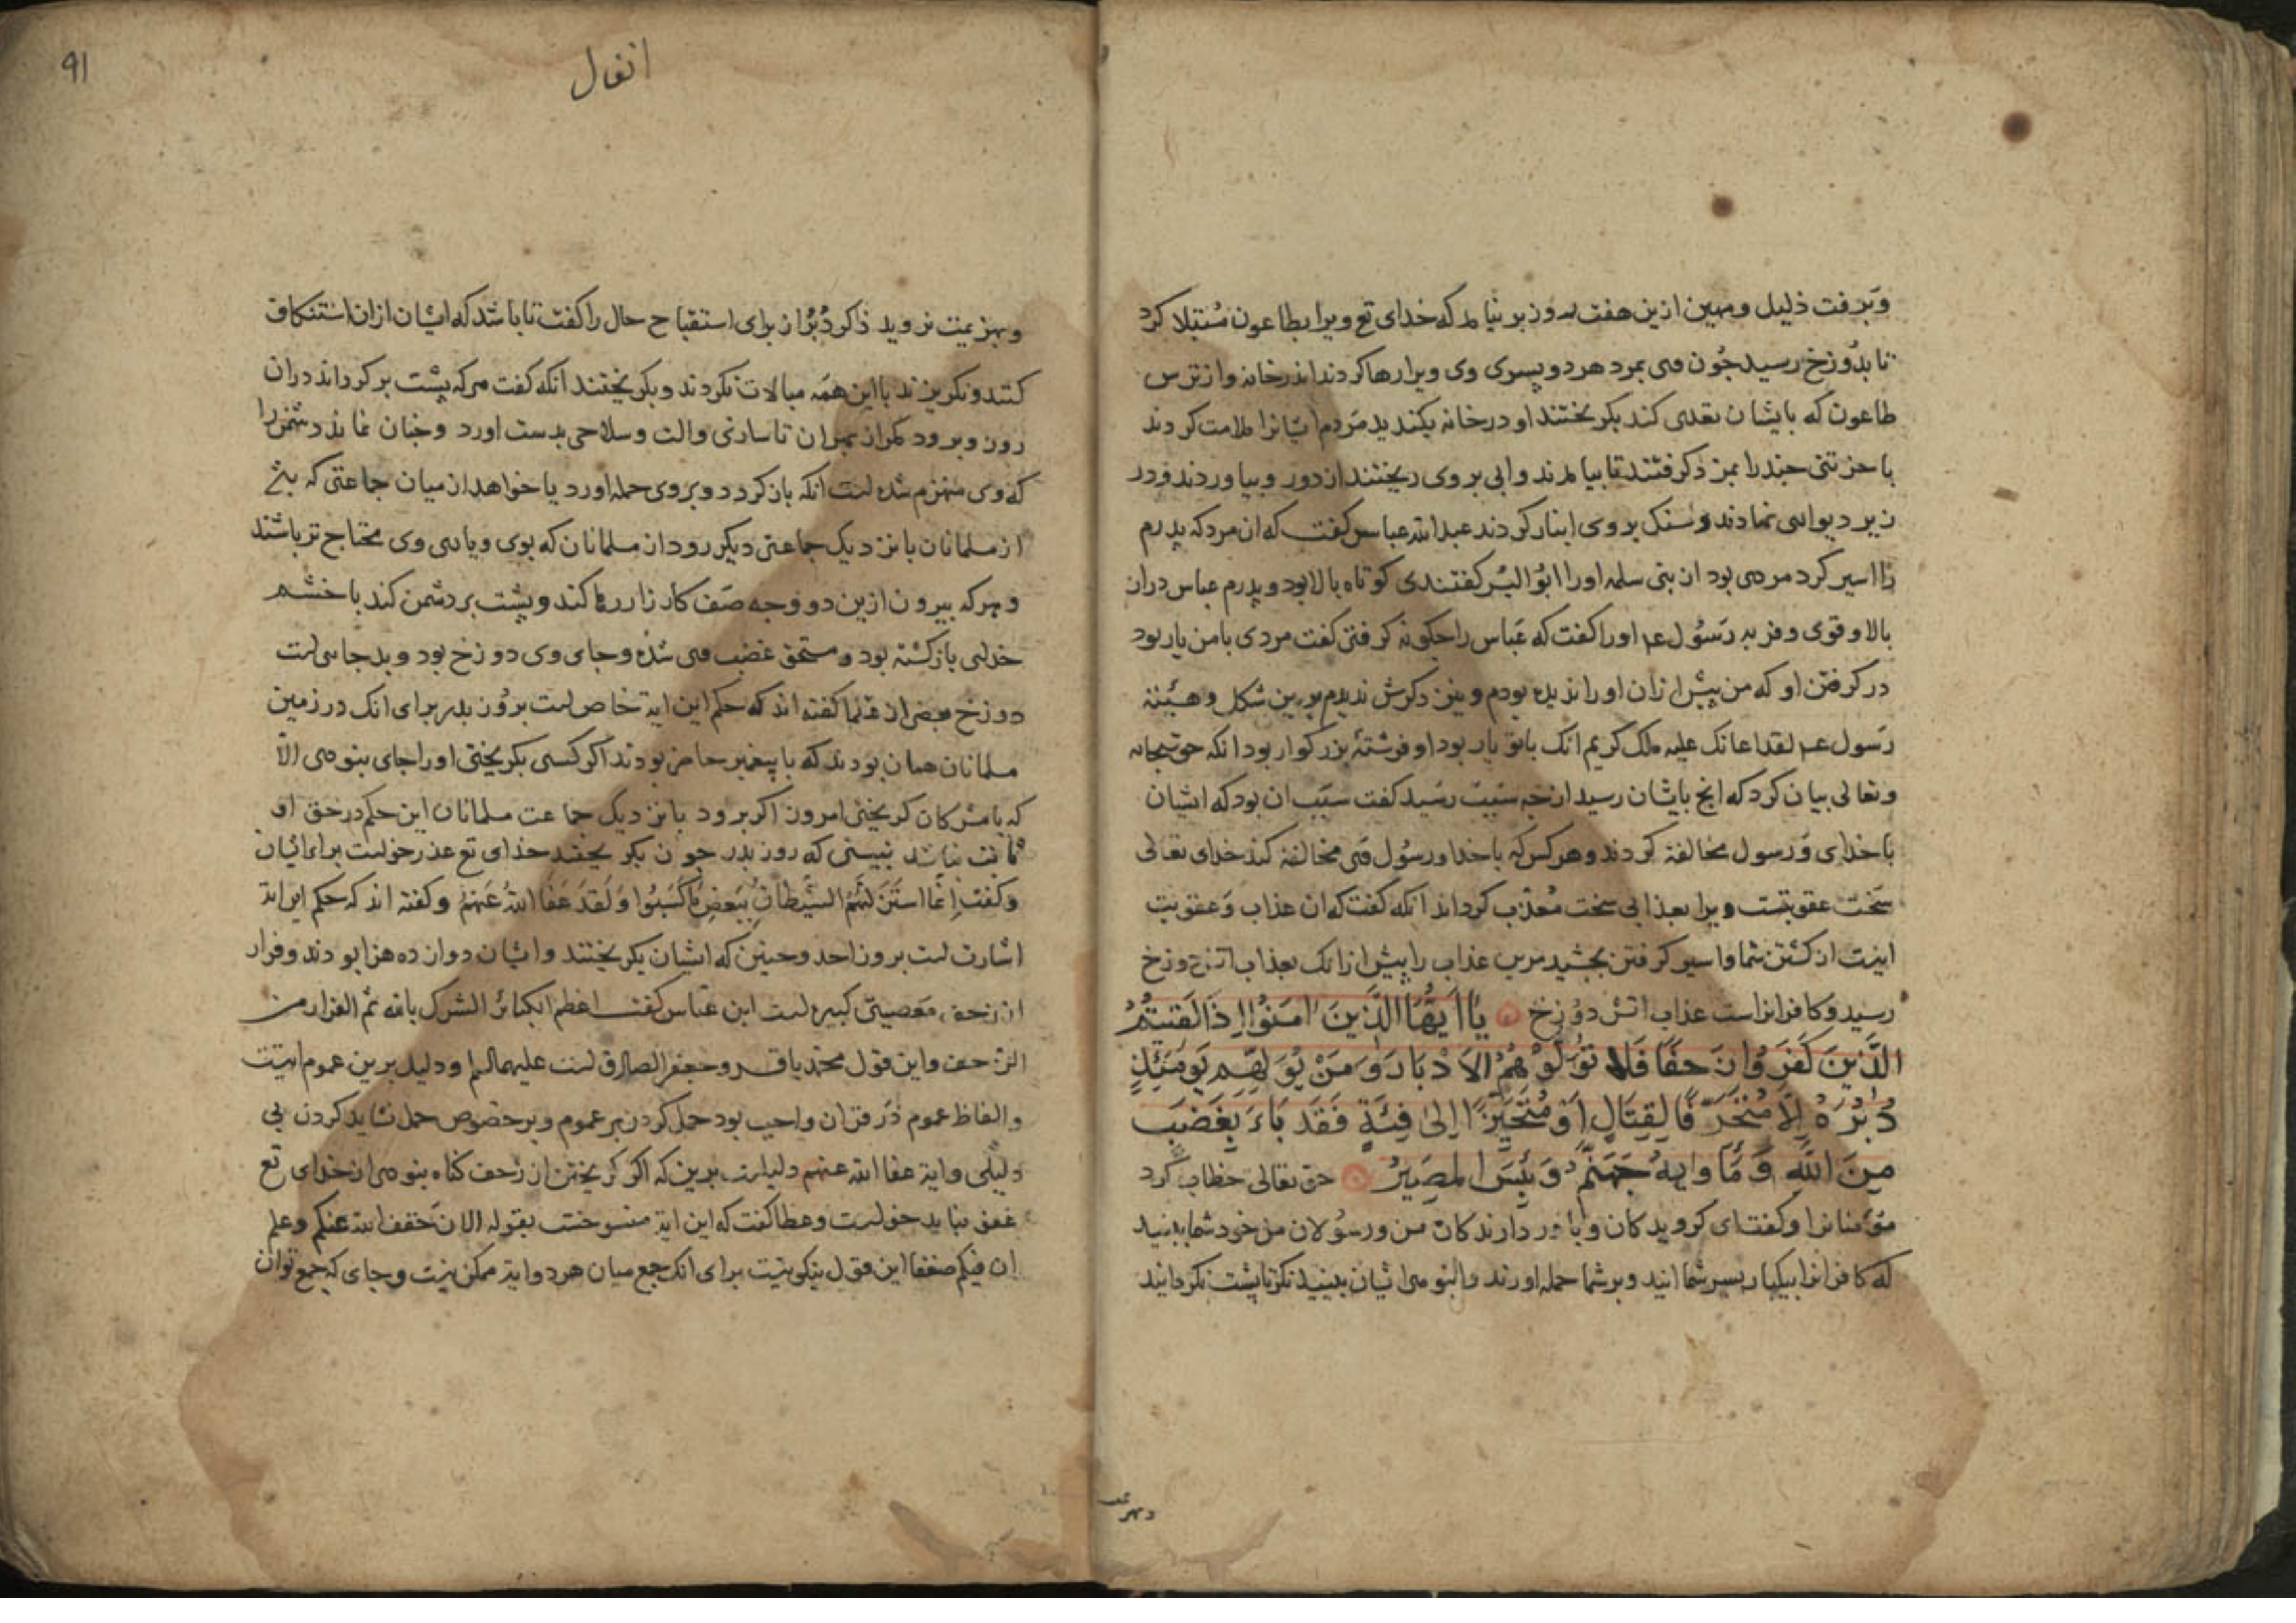 وبرفت ذلیل ومهین ازین هفت روز برنیامد که خدای تع ویرا بطاعون مبتلا کرد
تا بدوزخ رسید جون وی بمرد هر دو پسری وی ویرا رها کردند اندر خانه وازترس
طاعون که بایشان تعدی کند بکریختند او در خانه بکندید مردم ایشانرا ملامت کردند
تنی جند را بمزد کرفتند تا بیامدند وابی بروی ریختند از دور وبیاوردند ودر
زیر دیواری نهادند وسنک بروی انبار کردند عبدالله عباس کفت که ان مرد که پدرم
را اسیر کرد مردی بود از بنی سلمه اورا ابوالیسر کفتندی کوتاه بالا بود وپدرم عباس دراز
بالا وقوی وفربه رسول عم اورا کفت که عباس را جکونه کرفتی کفت مردی بامن یار بود
در کرفتن او که من پیش ازان اورا ندیده بودم ونیز دکرش ندیدم برین شکل وهیئة
رسول عم لقد اعانک علیه ملک کریم انک باتو یار بود او فرشتهٔ بزرکوار بود انکه حق سبحانه
وتعالی بیان کرد که انج بایشان رسید از جه سبب رسید کفت سبب ان بود که ایشان
با خدای ورسول مخالفة کردند وهر کس که با خدا ورسول وی مخالفة کند خدای تعالی
سخت عقوبتست ویرا بعذابی سخت معذب کرداند انکه کفت که ان عذاب وعقوبت
اینست از کشتن شما واسیر کرفتن بجشید مرین عذاب را پیش ازانک بعذاب اتش دوزخ
رسید وکافرانراست عذاب اتش دوزخ یا ایها الذین امنوا اذا لقیتم
الذین کفروا زحفا فلا تولوهم الادبار ومن یولهم یومئذ
دبره الا متحرفا لقتال او متحیزا الی فئة فقد باء بغضب
من الله وماویه جهنم وبئس المصیر حق تعالی خطاب کرد
مؤمنانرا وکفت ای کرویدکان وباور دارندکان من ورسولان من جون شما ببینید
که کافرانرا بیکبار بسر شما ایند وبر شما حمله اورند وانبوهی ایشان ببینید نکر تا پشت نکردانید
وبهزیمت
۹۱
انفال
وبهزیمت نروید ذکر دبر از برای استقباح حال را کفت تا باشد که ایشان ازان استنکاف
کنند ونکریزند با این همه مبالات نکردند وبکریختند انکه کفت هرکه پشت برکرداند دران
روز وبرود مکر از بهر ان تا سازی والت وسلاحی بدست اورد وجنان نماید دشمن را
که وی منهزم شده است انکه بازکردد وبروی حمله اورد یا خواهد از میان جماعتی که
از مسلمانان با نزدیک جماعتی دیکر رود از مسلمانان که بوی ویاری وی محتاج تر باشند
وهرکه بیرون ازین دو وجه صف کارزار رها کند وپشت بر دشمن کند با خشم
خدای بازکشته بود ومستحق غضب وی شده وجای وی دوزخ بود وبد جایی است
دوزخ بعضی از علما کفته اند که حکم این ایة خاص است بروز بدر برای انک در زمین
مسلمانان همان بودند که با پیغمبر حاضر بودند اکر کسی بکریختی اورا جای نبودی الا
که با مشرکان کریختی امروز اکر برود با نزدیک جماعت مسلمانان این حکم در حق او
ثابت نباشد نبینی که روز بدر جون بکریختند خدای تع عذر خواست برای ایشان
وکفت انما استزلهم الشیطان ببعض ما کسبوا ولقد عفا الله عنهم وکفته اند که حکم این ایة
اشارت است بروز احد وحنین که ایشان بکریختند وایشان دوازده هزار بودند وفرار
از زحف معصیتی کبیره است ابن عباس کفت اعظم الکبائر الشرک بالله ثم الفرار من
الزحف واین قول محمد باقر وجعفر الصادق است علیهما السلم ودلیل برین عموم ایتست
والفاظ عموم در قران واجب بود حمل کردن بر عموم وبر خصوص حمل نشاید کردن بی
دلیلی وایة عفا الله عنهم دلیلست برین که اکر کریختن از زحف کناه نبودی از خدای تع
عفو نباید خواست وعطا کفت که این ایة منسوخست بقوله الان خفف الله عنکم وعلم
ان فیکم ضعفا این قول نیکو نیست برای انک جمع میان هردو ایة ممکن نیست وجای که جمع توان